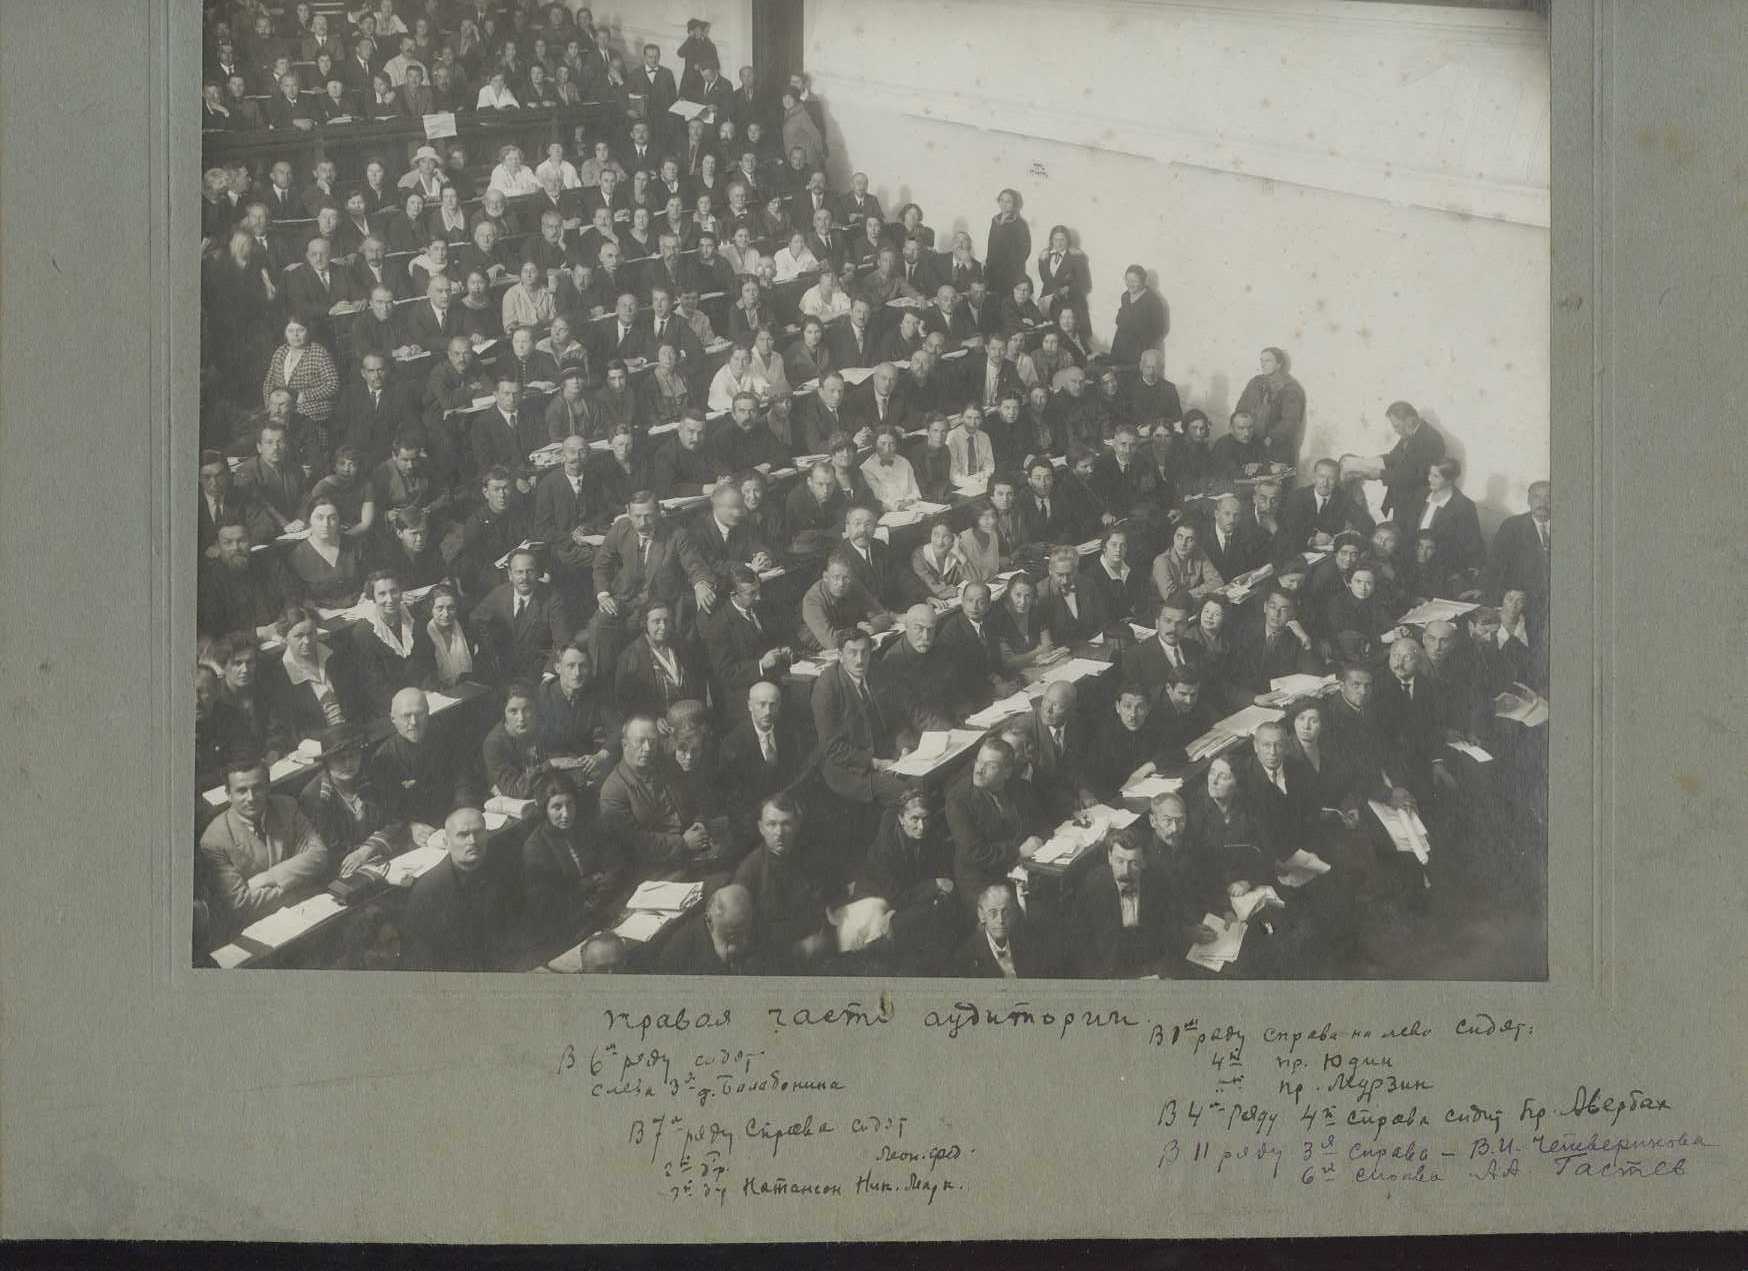 правая часть аудитории.
В 6м ряду сидят
слева 3я д. Балабонина
В 7м ряду справа сидят
2й др. Леон. фед.
3й др Натансон Ник. Марк.
В 1м ряду справа на лево сидят:
4й пр. Юдин
пр. Мурзин
В 4м ряду 4й справа сидит пр. Авербах
В 11 ряду 3я справа – В.И. Четверикова
6й справа А.А. Гастев